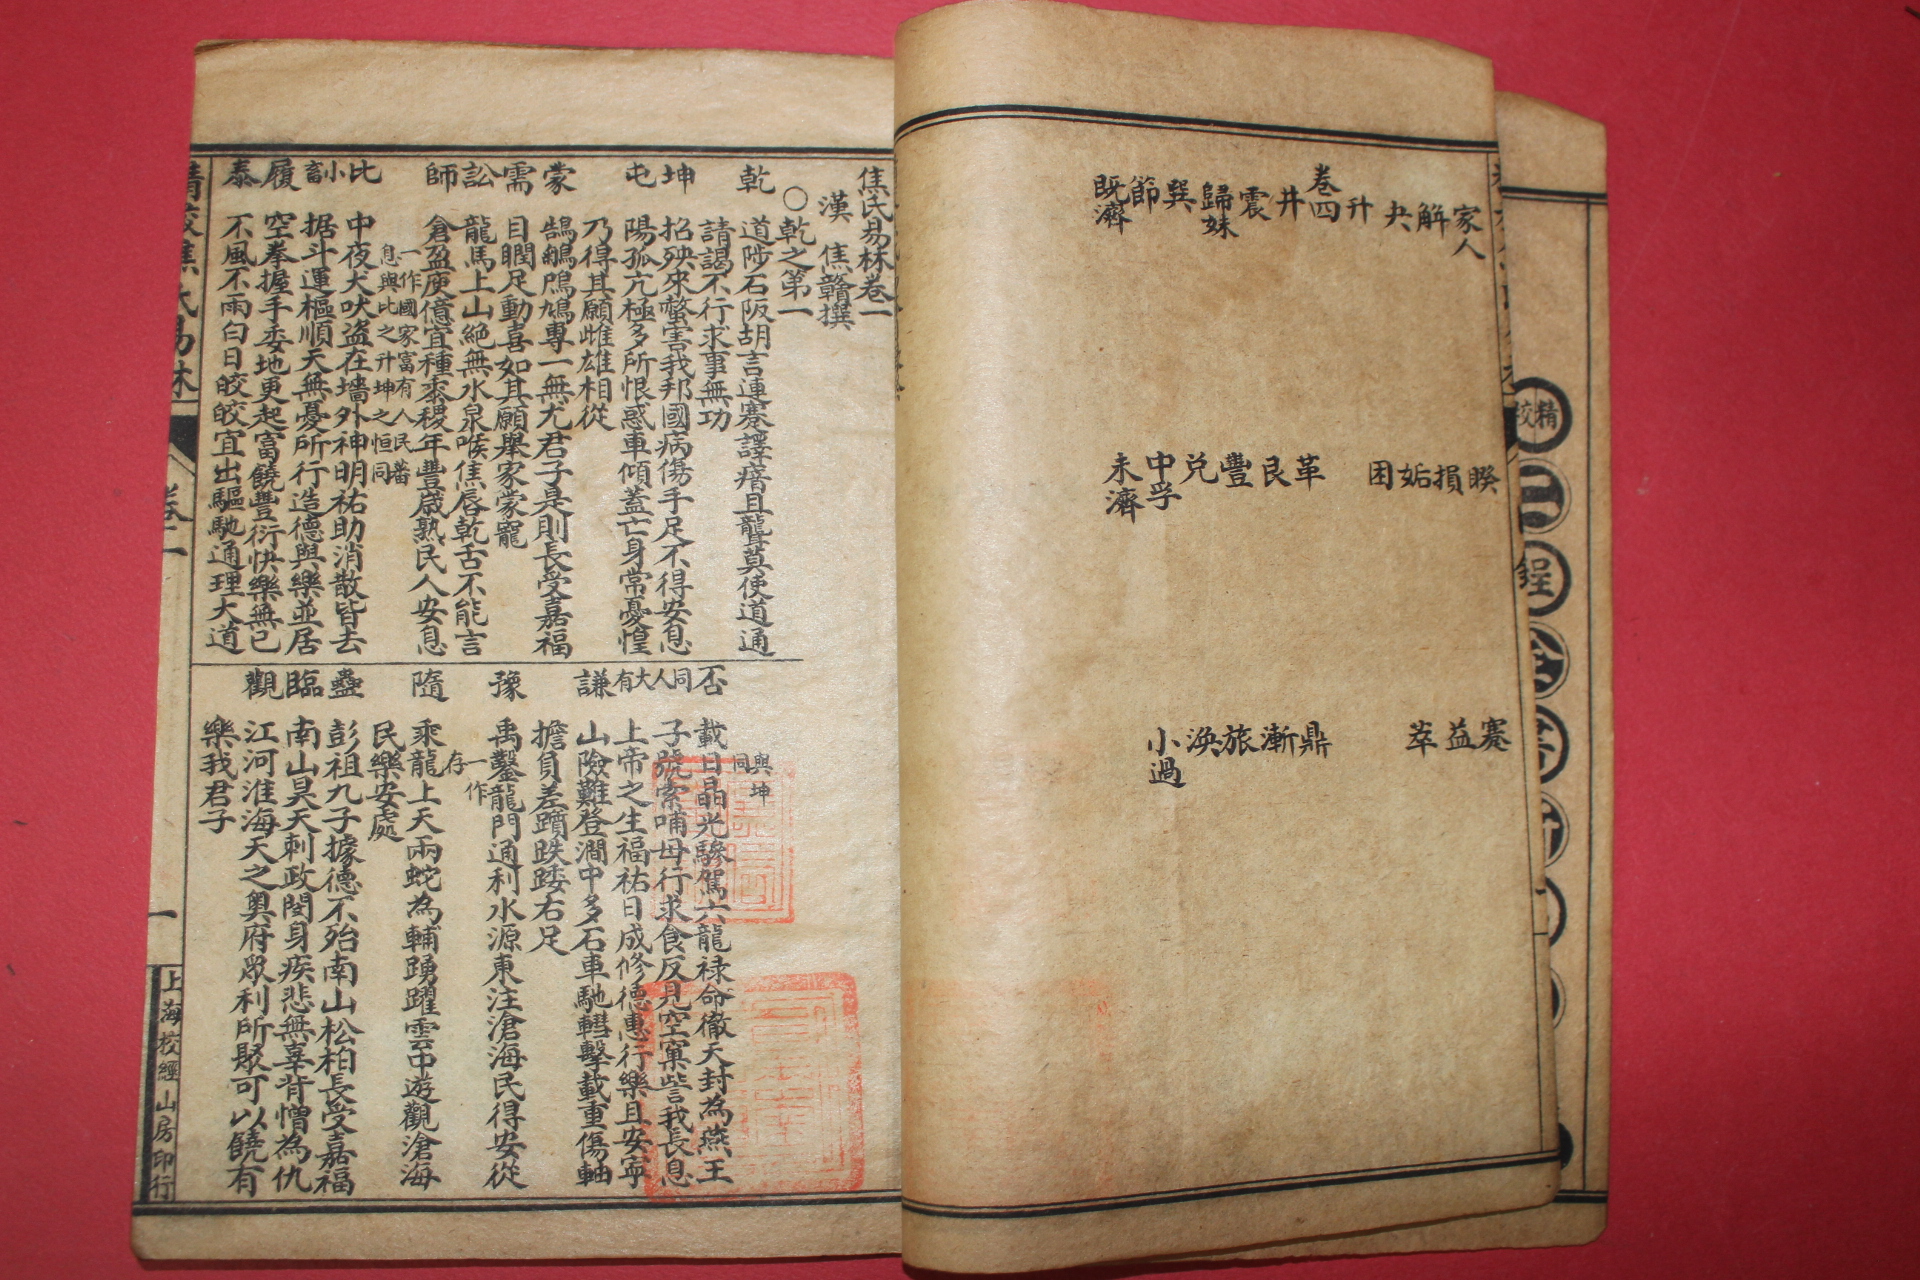 家人
解
夬
升
卷四
井
震
歸妹
巽
節
既濟
睽
損
姤
困
革
艮
豐
兌
中孚
未濟
蹇
益
萃
鼎
漸
旅
渙
小過
焦氏易林卷一
漢 焦贛撰
○乾之第一
乾 道陟石阪胡言連蹇譯瘖且聾莫使道通
請謁不行求事無功
坤 招殃來螫害我邦國病傷手足不得安息
屯 陽孤亢極多所恨惑車傾蓋亡身常憂惶
乃得其願雌雄相從
蒙 鵠鵃鳲鳩專一無尤君子是則長受嘉福
需 目瞤足動喜如其願舉家蒙寵
訟 龍馬上山絕無水泉喉焦唇乾舌不能言
師 倉盈庾億宜種黍稷年豐歲熟民人安息
一作國家富有人民蕃
息與比之升坤之恒同
比 中夜犬吠盜在墻外神明祐助消散皆去
小畜 据斗運樞順天無憂所行造德與樂並居
履 空拳握手委地更起富饒豐衍快樂無已
泰 不風不雨白日皎皎宜出驅馳通理大道
與坤
同
否 載日晶光驂駕六龍祿命徹天封為燕王
同人 子號索哺母行求食反見空窠訾我長息
大有 上帝之生福祐日成修德惠行樂且安寧
謙 山險難登澗中多石車馳轊擊載重傷軸
擔負差躓跌踒右足
豫 禹鑿龍門通利水源東注滄海民得安從
一作
存
隨 乘龍上天兩蛇為輔踴躍雲中遊觀滄海
民樂安處
蠱 彭祖九子據德不殆南山松柏長受嘉福
臨 南山昊天刺政閔身疾悲無辜背憎為仇
觀 江河淮海天之奧府眾利所聚可以饒有
樂我君子
精校焦氏易林
卷一
一
上海校經山房印行
精校